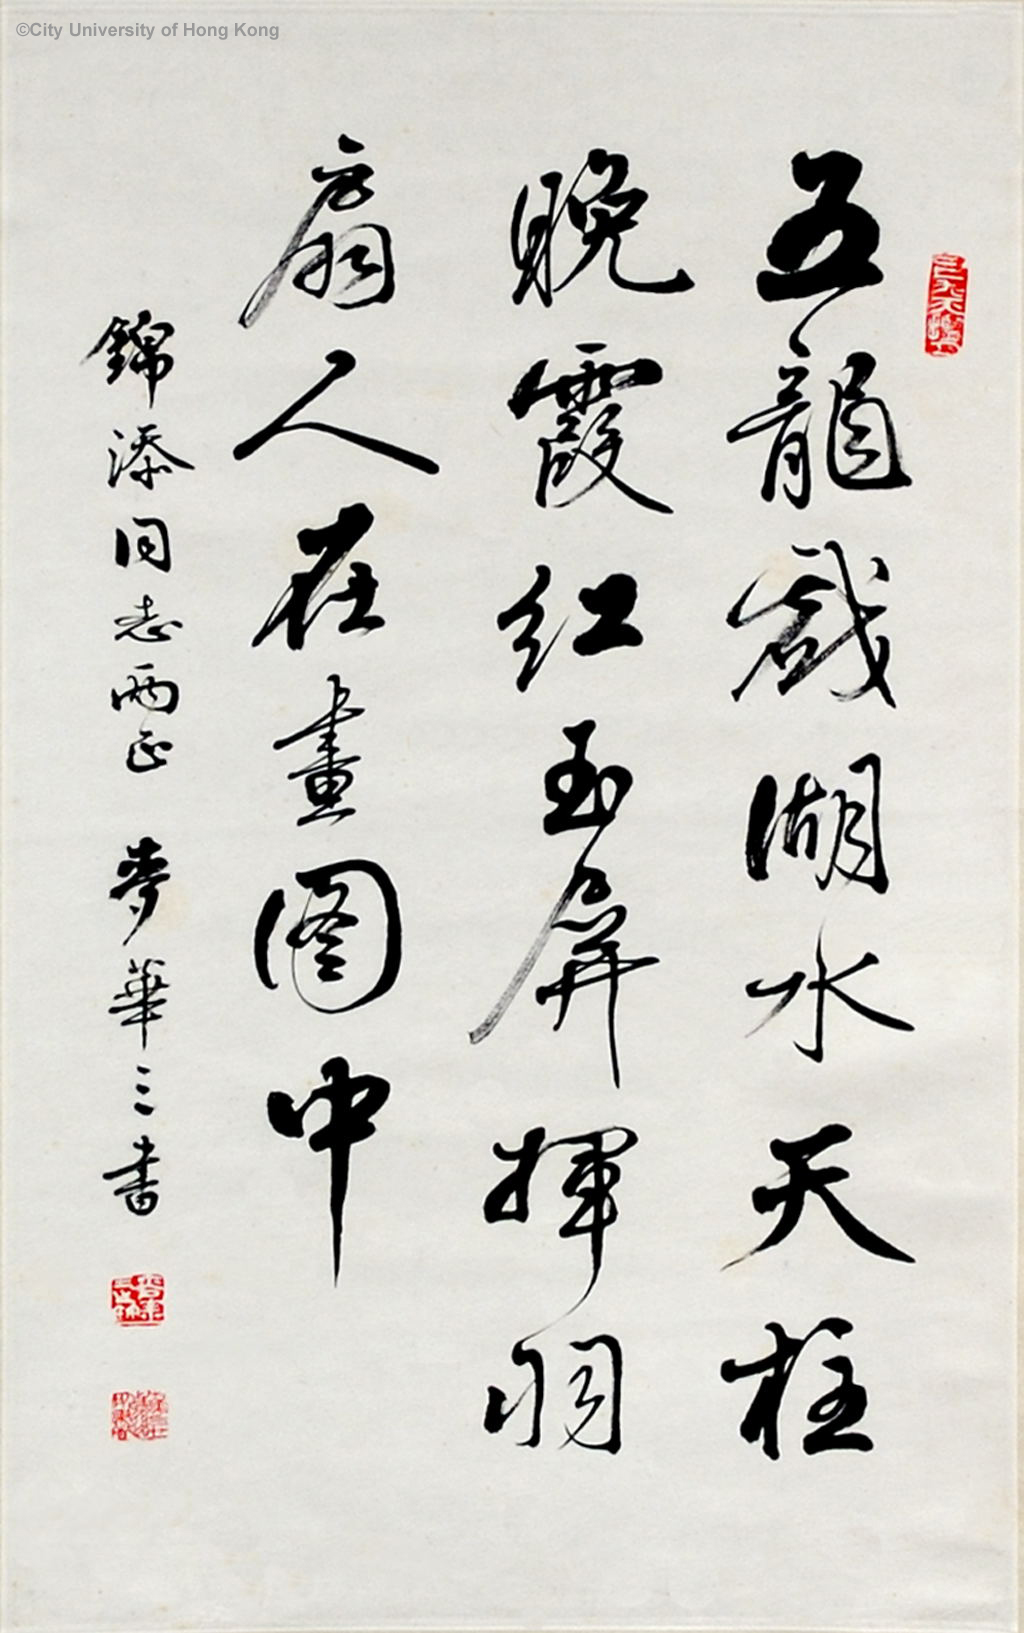 ©City University of Hong Kong
五龍戲湖水天柱
晚霞红玉屏揮羽
扇人在畫圖中
錦添同志两正 麥華三書